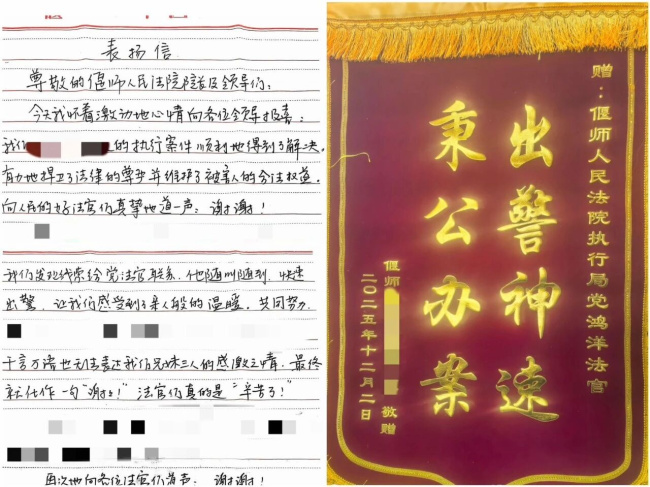 表扬信
尊敬的偃师人民法院院长及领导们：
今天我怀着激动地心情向各位领导报喜：
我们 的执行案件顺利地得到了解决。
有力地捍卫了法律的尊严并维护了被害人的合法权益。
向人民的好法官们真挚地道一声：谢谢！
我们发现线索给党法官联系，他随叫随到，快速
出警，让我们感受到了亲人般的温暖。共同努力
千言万语也无法表达我们兄妹三人的感激之情，最终
就化作一句"谢谢！"法官们真的是"辛苦了！"
再次地向各位法官们道声：谢谢！
赠：偃师人民法院执行局党鸿洋法官
出警神速
秉公办案
偃师 敬赠
二〇二五年十二月二日